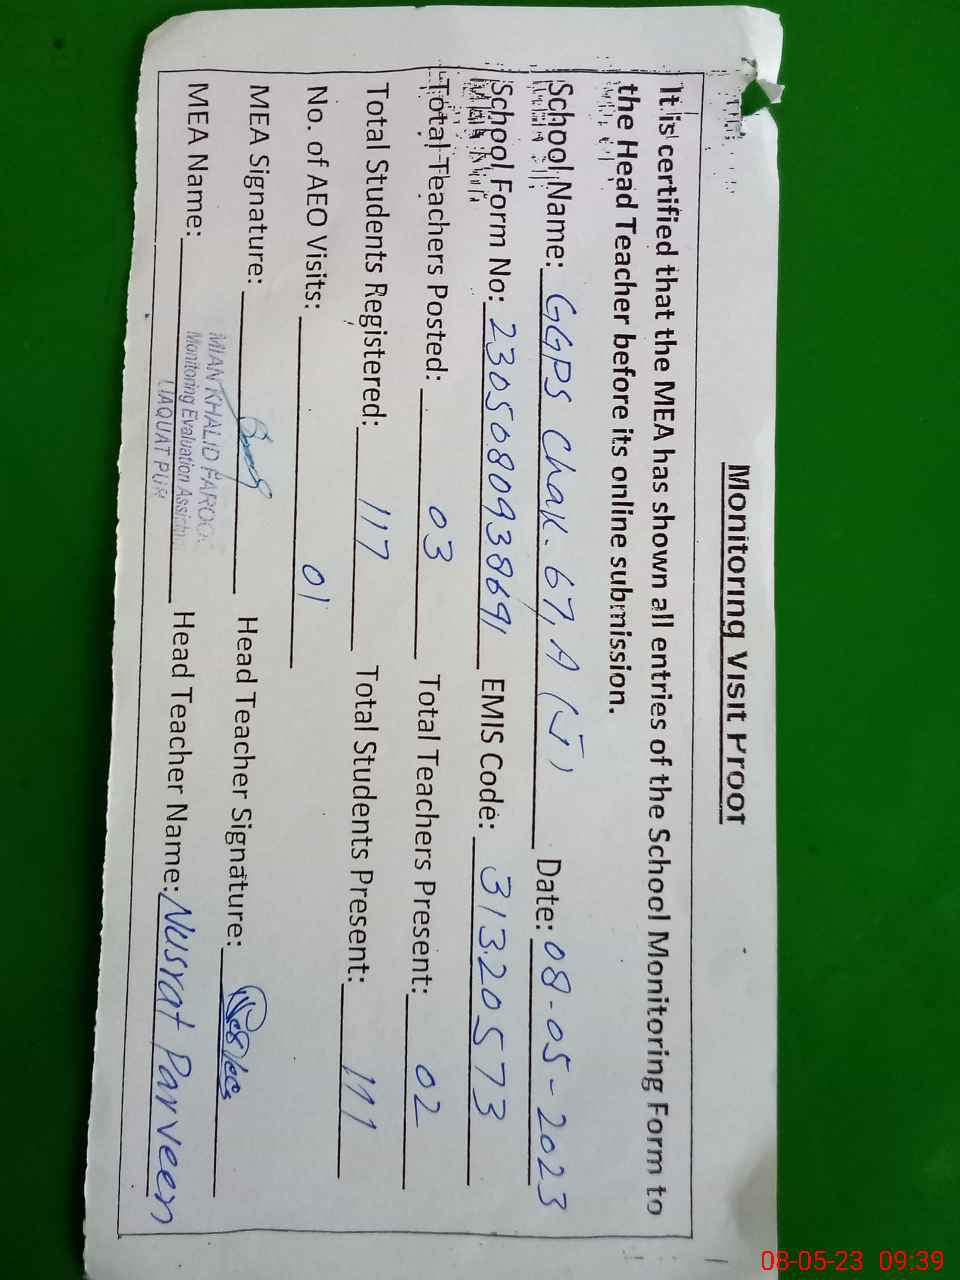 Monitoring Visit Proof
It is certified that the MEA has shown all entries of the School Monitoring Form to
the Head Teacher before its online submission.
School Name: GGPS Chak. 67, A (J) Date: 08-05-2023
School Form No: 23050809938691 EMIS Code: 31320573
Total Teachers Posted: 03 Total Teachers Present: 02
Total Students Registered: 117 Total Students Present: 111
No. of AEO Visits: 01
MEA Signature: Head Teacher Signature:
MEA Name: Head Teacher Name: Nusrat Parveen
MIAN KHALID FAROOQ
Monitoring Evaluation Assistant
LIAQUAT PUR
08-05-23 09:39